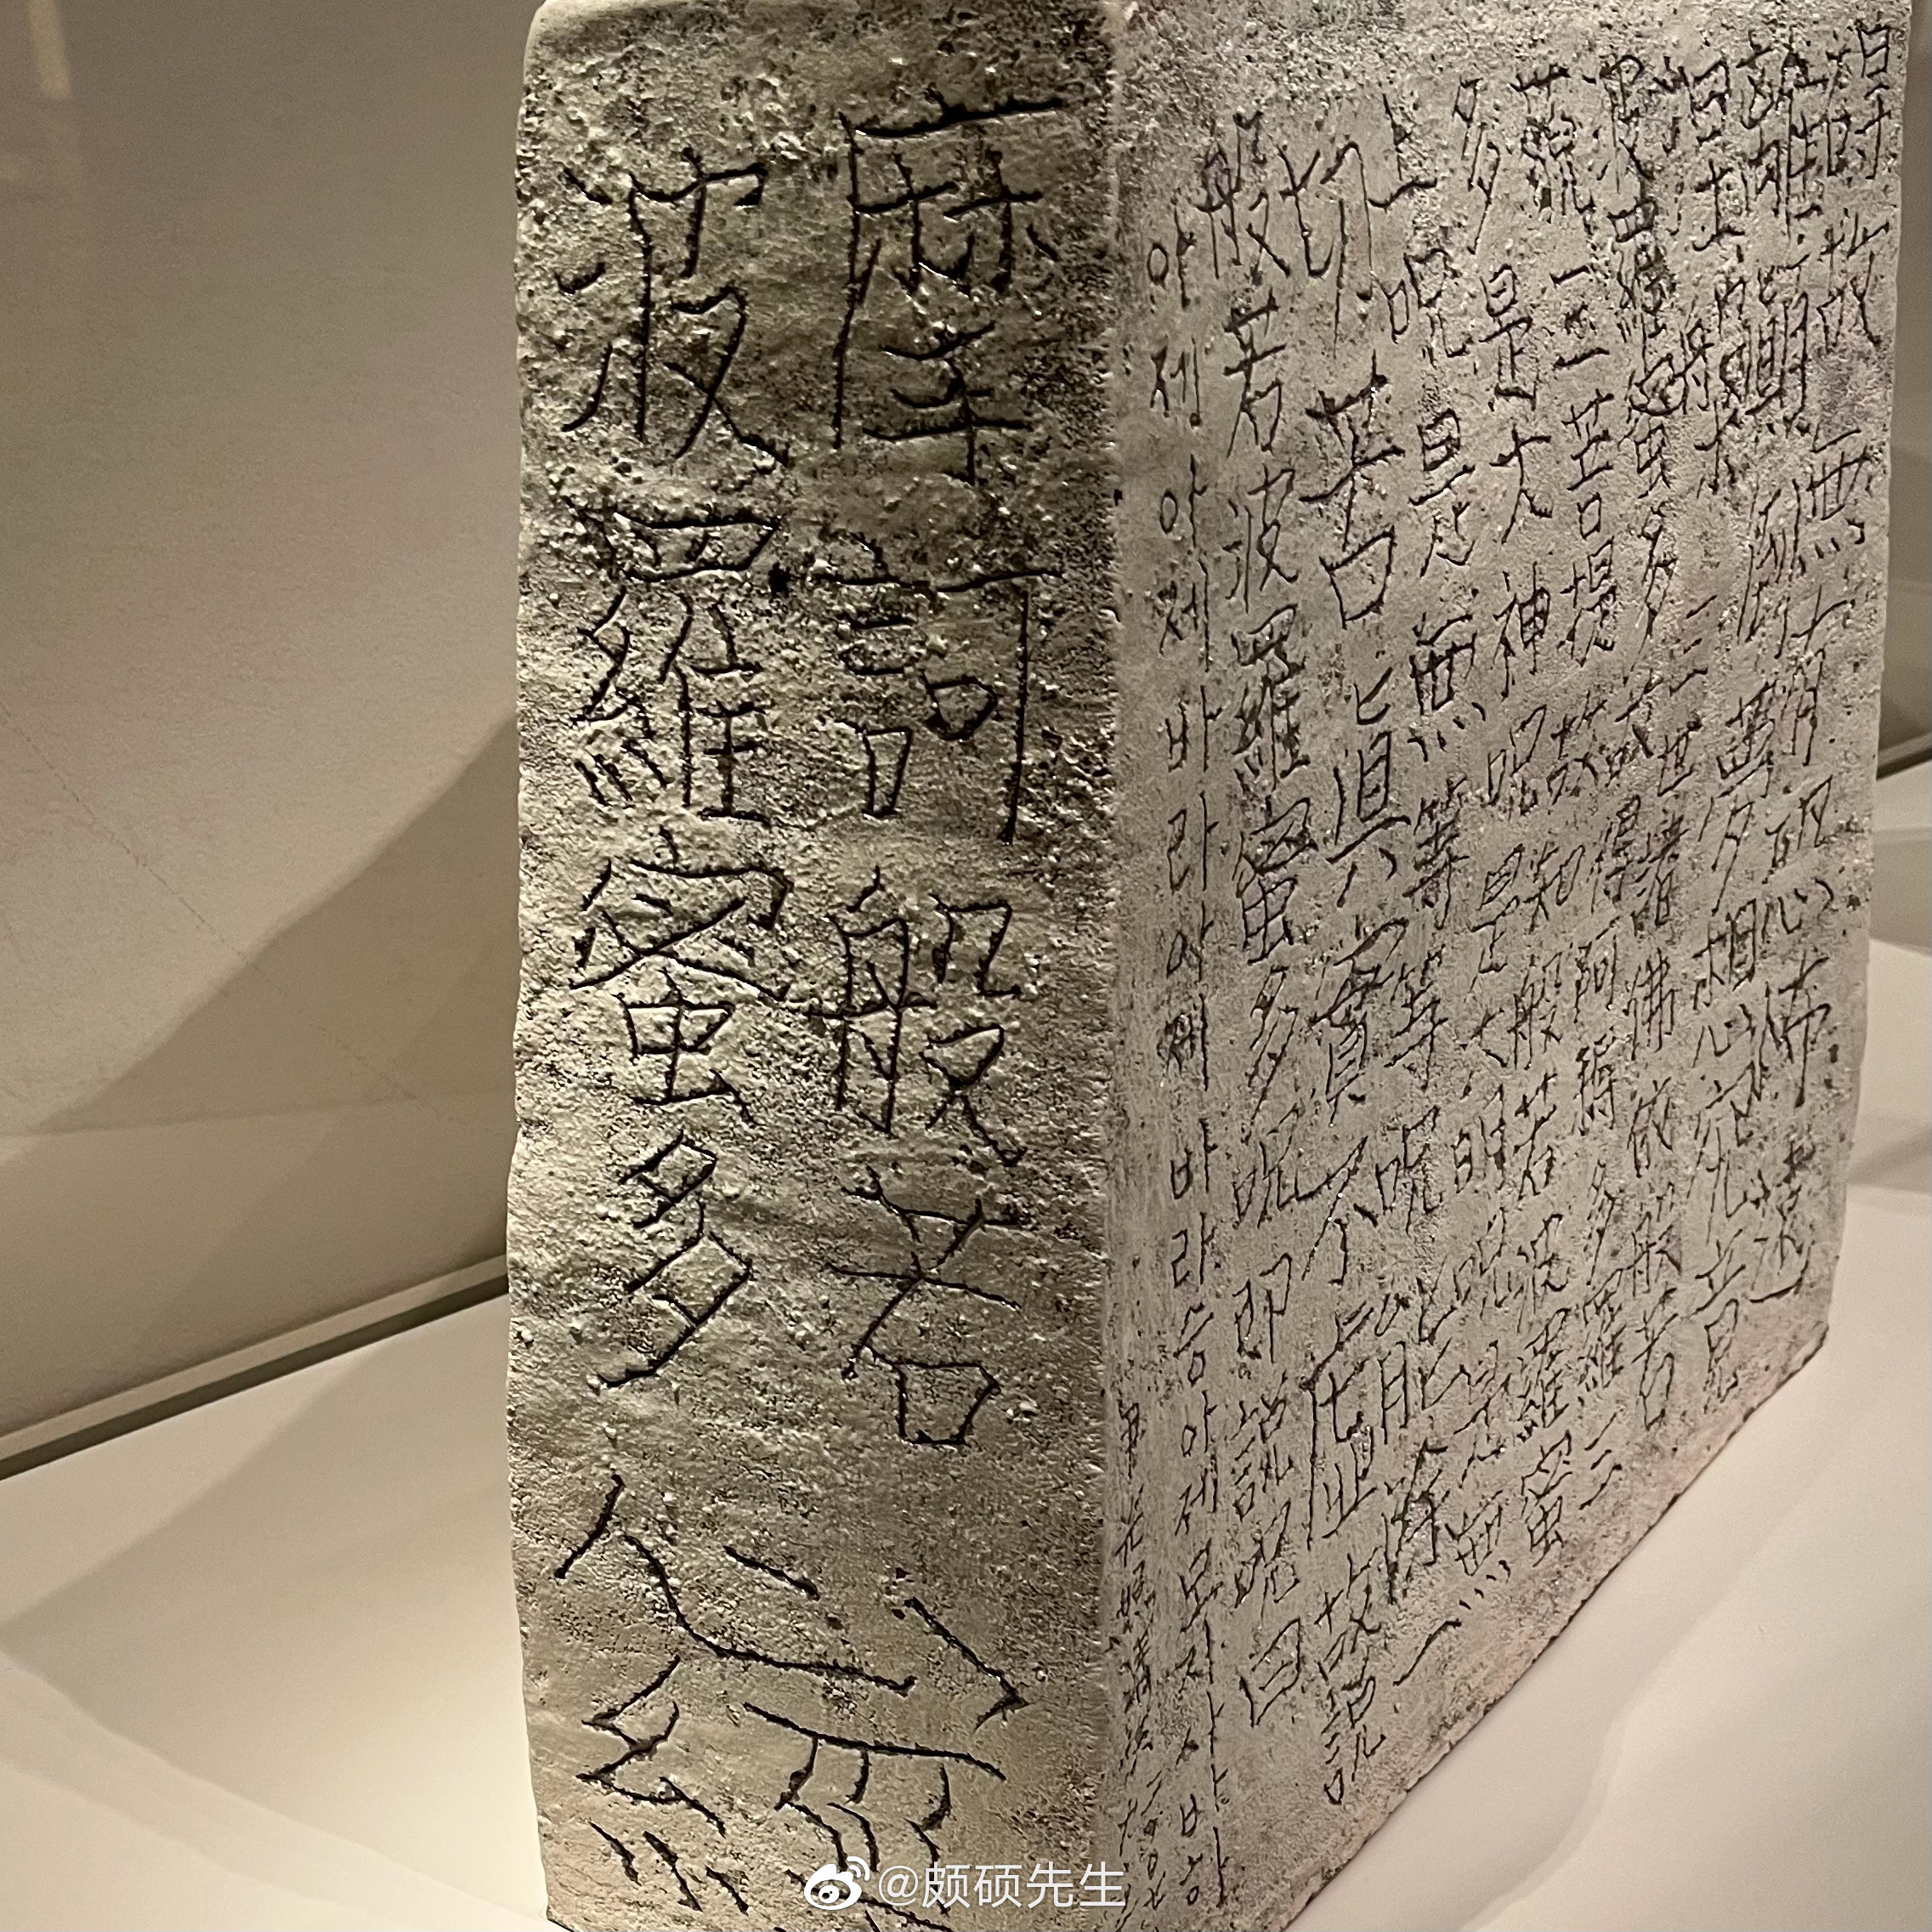 摩訶般若
波羅蜜多
心經
故無有恐怖遠
離顚倒夢想究竟
三世諸佛依般若
波羅蜜多故得阿耨多羅三
藐三菩提故知般若波羅蜜
多是大神呪是大明呪是無
上呪是無等等呪能除一
切苦眞實不虛故說
般若波羅蜜多呪卽說呪曰
아제아제바라아제바라승아제모지사바하
@颇硕先生